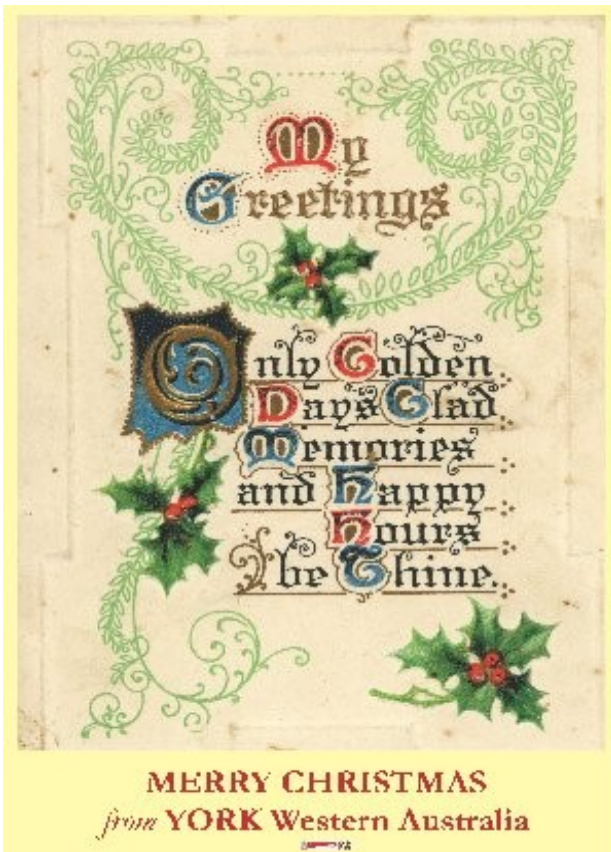 My
Greetings
Only Golden
Days Glad
Memories
and Happy
Hours
be Thine.
MERRY CHRISTMAS
from YORK Western Australia